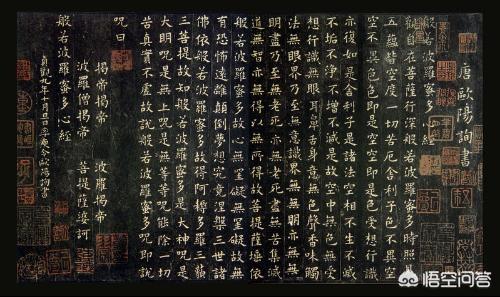 唐歐陽詢書
般若波羅蜜多心經
觀自在菩薩行深般若波羅蜜多時照見
五蘊皆空度一切苦厄舍利子色不異空
空不異色色即是空空即是色受想行識
亦復如是舍利子是諸法空相不生不滅
不垢不淨不增不減是故空中無色無受
想行識無眼耳鼻舌身意無色聲香味觸
法無眼界乃至無意識界無無明亦無無
明盡乃至無老死亦無老死盡無苦集滅
道無智亦無得以無所得故菩提薩埵依
般若波羅蜜多故心無罣礙無罣礙故無
有恐怖遠離顛倒夢想究竟涅槃三世諸
佛依般若波羅蜜多故得阿耨多羅三藐
三菩提故知般若波羅蜜多是大神咒是
大明咒是無上咒是無等等咒能除一切
苦真實不虛故說般若波羅蜜多咒即說
咒曰
揭帝揭帝 波羅揭帝
波羅僧揭帝 菩提薩婆訶
般若波羅蜜多心經
貞觀九年十月旦日率更令歐陽詢書
悟空问答